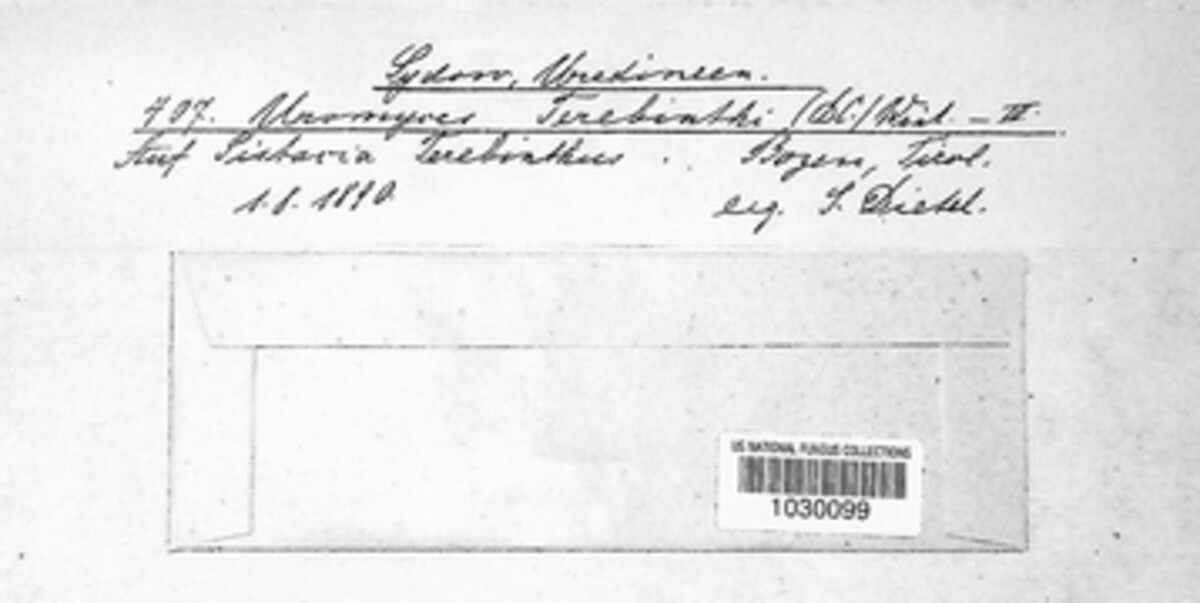 Sydow, Uredineen.
407. Uromyces Terebinthi (DC.) Wint. – III.
Auf Pistacia Terebinthus. Bozen, Tirol.
1.8.1890. leg. P. Dietel.
US NATIONAL FUNGUS COLLECTIONS
1030099